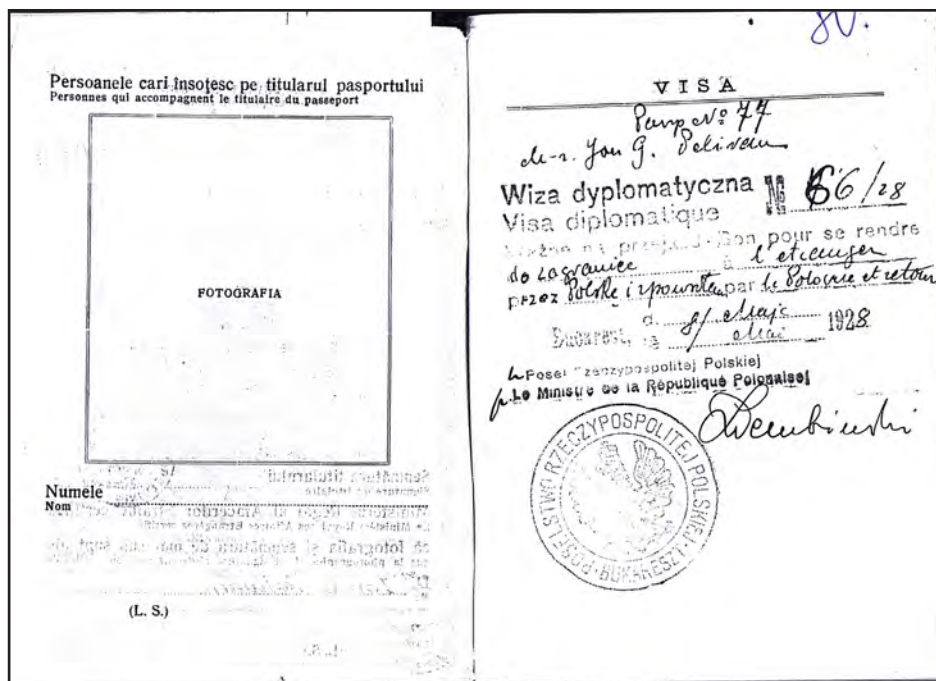 Persoanele cari însoțesc pe titularul pasportului
Personnes qui accompagnent le titulaire du passeport
FOTOGRAFIA
Numele
Nom
(L. S.)
80.
VISA
Pasp No 77
Wiza dyplomatyczna № 66/28
Visa diplomatique
Ważne na przejazd - Bon pour se rendre
do zagranicę à l'etranger
przez Polskę i par la Pologne et retour
Bucarest, d. 8/ Maja 1928
le Mai
Poseł Rzeczypospolitej Polskiej
p. Le Ministre de la République Polonaise
POSELSTWO RZECZYPOSPOLITEJ POLSKIEJ · BUKARESZT